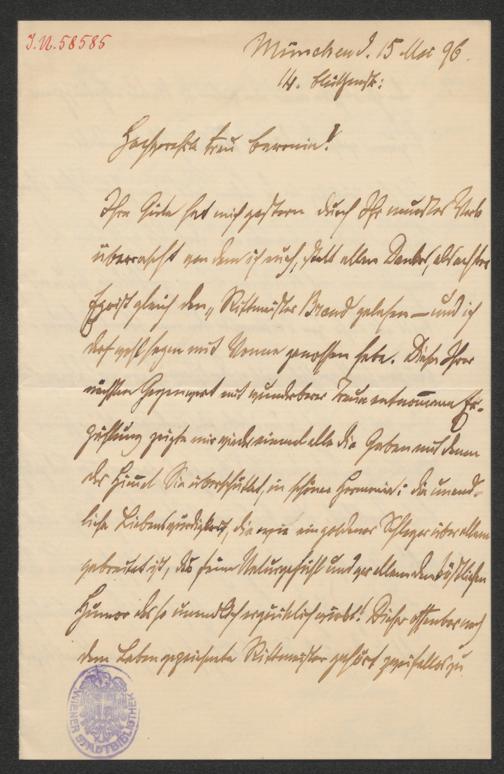 J.N. 58585
München d. 15 Mai 96.
14. Blüthenstr:
Hochverehrte Frau Baronin!
Ihre Güte hat mich gestern durch Ihr neuestes Werk
überrascht von dem ich auch, statt allen Dankes, als echter
Egoist gleich den „Rittmeister Brand gelesen – und ich
darf wohl sagen mit Wonne genossen habe. Diese Ihrer
nächsten Gegenwart mit wunderbarer Treue entnommene Er-
zählung zeigte mir wieder einmal alle die Gaben mit denen
der Himmel Sie überschüttet, in schöner Harmonie: die unend-
liche Liebenswürdigkeit, die wie ein goldener Schleier über allem
gebreitet ist, das feine Naturgefühl und vor allem den köstlichen
Humor der so unendlich erquicklich wirkt! Dieser offenbar nach
dem Leben gezeichnete Rittmeister gehört zweifellos zu
WIENER STADTBIBLIOTHEK